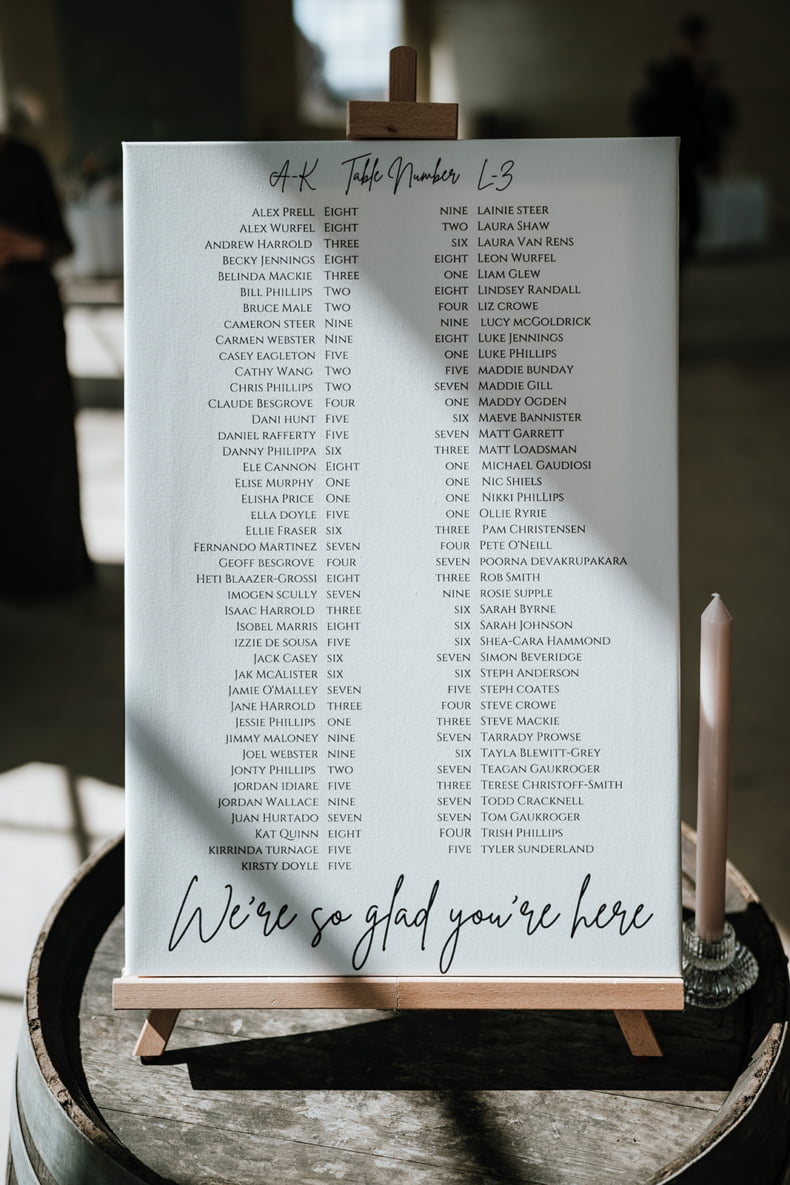 A-K Table Number L-3
ALEX PRELL EIGHT NINE LAINIE STEER
ALEX WURFEL EIGHT TWO LAURA SHAW
ANDREW HARROLD THREE SIX LAURA VAN RENS
BECKY JENNINGS EIGHT EIGHT LEON WURFEL
BELINDA MACKIE THREE ONE LIAM GLEW
BILL PHILLIPS TWO EIGHT LINDSEY RANDALL
BRUCE MALE TWO FOUR LIZ CROWE
CAMERON STEER NINE NINE LUCY MCGOLDRICK
CARMEN WEBSTER NINE EIGHT LUKE JENNINGS
CASEY EAGLETON FIVE ONE LUKE PHILLIPS
CATHY WANG TWO FIVE MADDIE BUNDAY
CHRIS PHILLIPS TWO SEVEN MADDIE GILL
CLAUDE BESGROVE FOUR ONE MADDY OGDEN
DANI HUNT FIVE SIX MAEVE BANNISTER
DANIEL RAFFERTY FIVE SEVEN MATT GARRETT
DANNY PHILIPPA SIX THREE MATT LOADSMAN
ELE CANNON EIGHT ONE MICHAEL GAUDIOSI
ELISE MURPHY ONE ONE NIC SHIELS
ELISHA PRICE ONE ONE NIKKI PHILLIPS
ELLA DOYLE FIVE ONE OLLIE RYRIE
ELLIE FRASER SIX THREE PAM CHRISTENSEN
FERNANDO MARTINEZ SEVEN FOUR PETE O'NEILL
GEOFF BESGROVE FOUR SEVEN POORNA DEVAKRUPAKARA
HETI BLAAZER-GROSSI EIGHT THREE ROB SMITH
IMOGEN SCULLY SEVEN NINE ROSIE SUPPLE
ISAAC HARROLD THREE SIX SARAH BYRNE
ISOBEL MARRIS EIGHT SIX SARAH JOHNSON
IZZIE DE SOUSA FIVE SIX SHEA-CARA HAMMOND
JACK CASEY SIX SEVEN SIMON BEVERIDGE
JAK MCALISTER SIX SIX STEPH ANDERSON
JAMIE O'MALLEY SEVEN FIVE STEPH COATES
JANE HARROLD THREE FOUR STEVE CROWE
JESSIE PHILLIPS ONE THREE STEVE MACKIE
JIMMY MALONEY NINE SEVEN TARRADY PROWSE
JOEL WEBSTER NINE SIX TAYLA BLEWITT-GREY
JONTY PHILLIPS TWO SEVEN TEAGAN GAUKROGER
JORDAN IDIARE FIVE THREE TERESE CHRISTOFF-SMITH
JORDAN WALLACE NINE SEVEN TODD CRACKNELL
JUAN HURTADO SEVEN SEVEN TOM GAUKROGER
KAT QUINN EIGHT FOUR TRISH PHILLIPS
KIRRINDA TURNAGE FIVE FIVE TYLER SUNDERLAND
KIRSTY DOYLE FIVE
We're so glad you're here